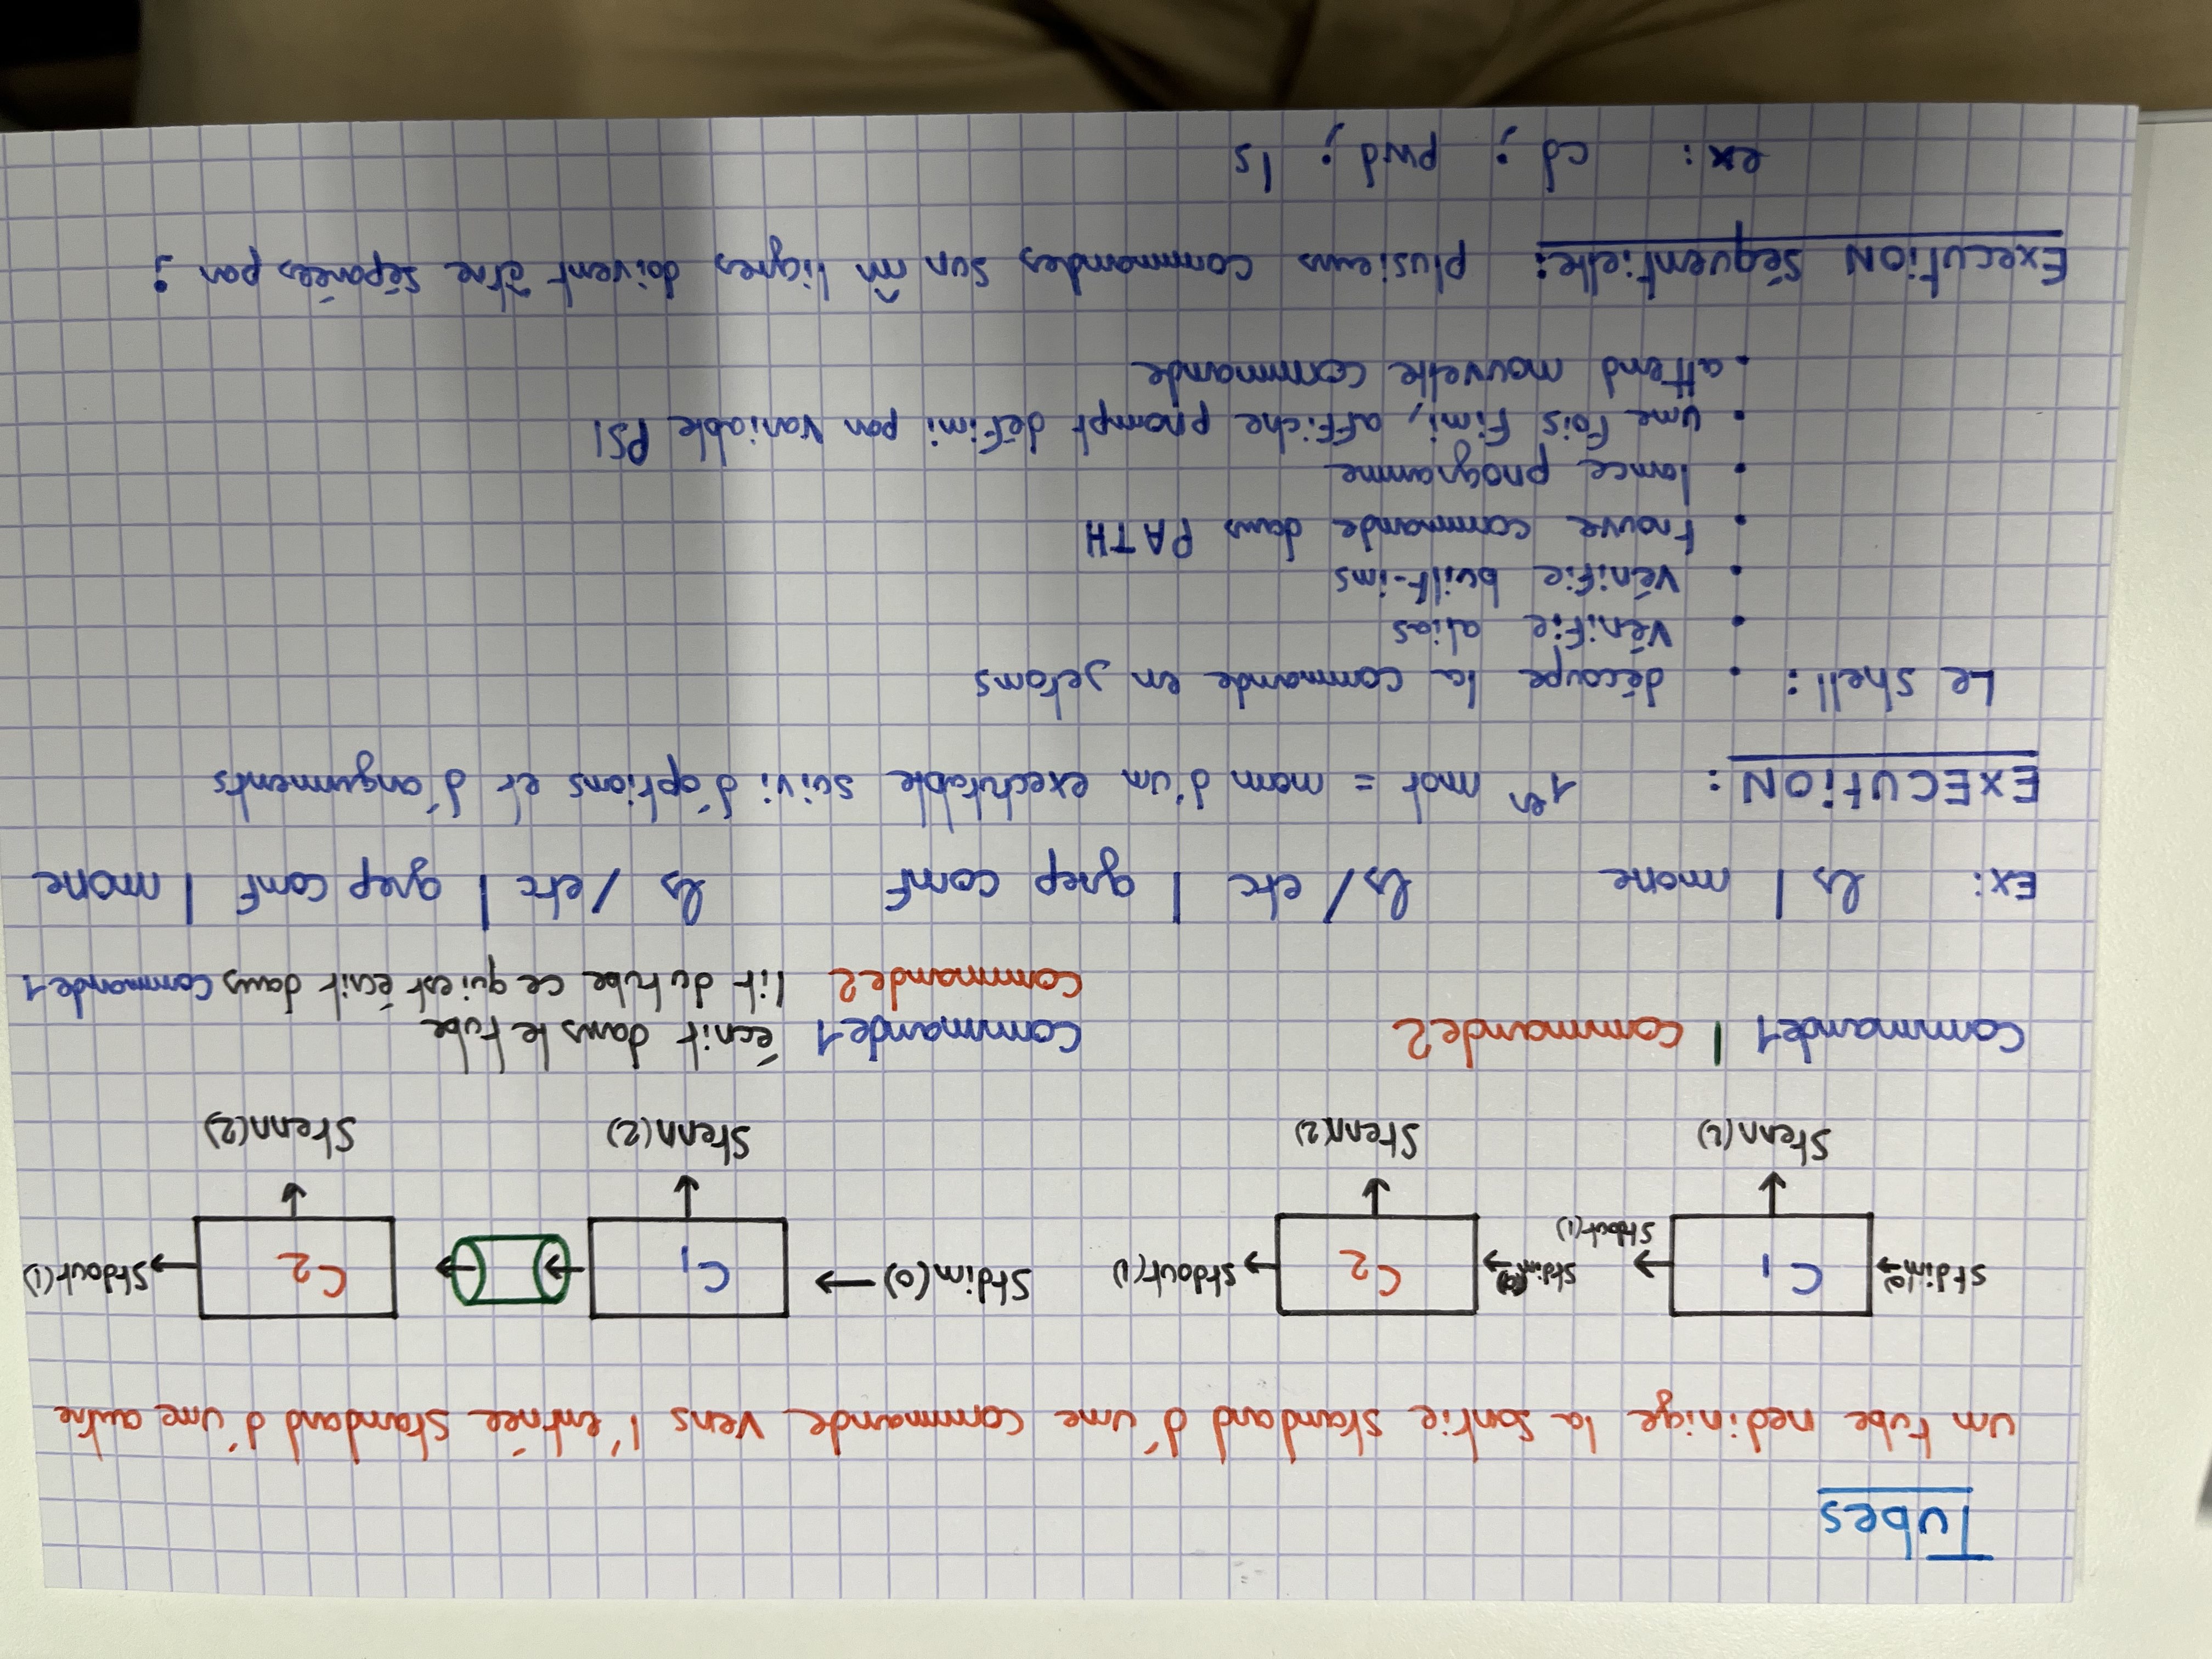 Tubes
un tube redirige la sortie standard d'une commande vers l'entrée standard d'une autre
stdin(0) C1 stdout(1) stdin(0) C2 stdout(1) Stdin(0) C1 C2 Stdout(1)
Sterr(2) Sterr(2) Sterr(2) Sterr(2)
Commande1 | Commande2 Commande1 écrit dans le tube
Commande2 lit du tube ce qui est écrit dans Commande1
Ex: ls | more ls/ etc | grep conf ls /etc | grep conf | more
EXECUTiON: 1er mot = nom d'un exectutable suivi d'options et d'arguments
Le shell: . découpe la commande en jetons
. vérifie alias
. vérifie built-ins
. trouve commande dans PATH
. lance programme
. une fois fini, affiche prompt défini par variable PS1
. attend nouvelle commande
Execution séquentielle: plusieurs commandes sur m̂ lignes doivent être séparées par ;
ex: cd ; pwd ; ls